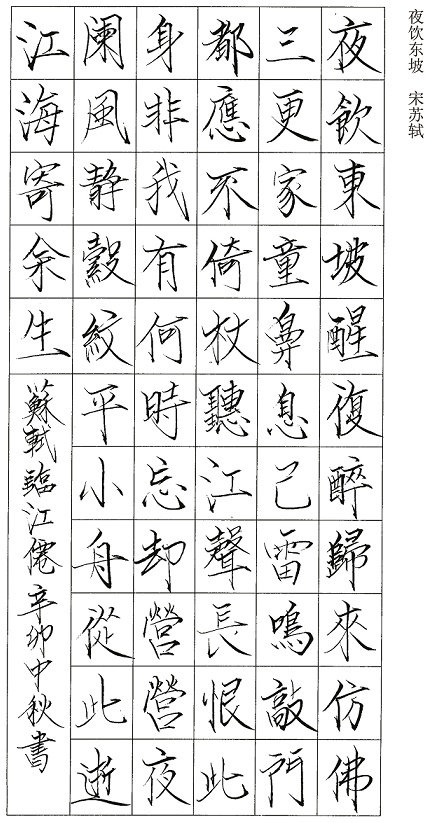 夜饮东坡 宋苏轼
夜飲東坡醒復醉歸來仿佛
三更家童鼻息已雷鳴敲門
都應不倚杖聽江聲長恨此
身非我有何時忘却營營夜
阑風静縠紋平小舟從此逝
江海寄余生
蘇軾臨江僊辛卯中秋書